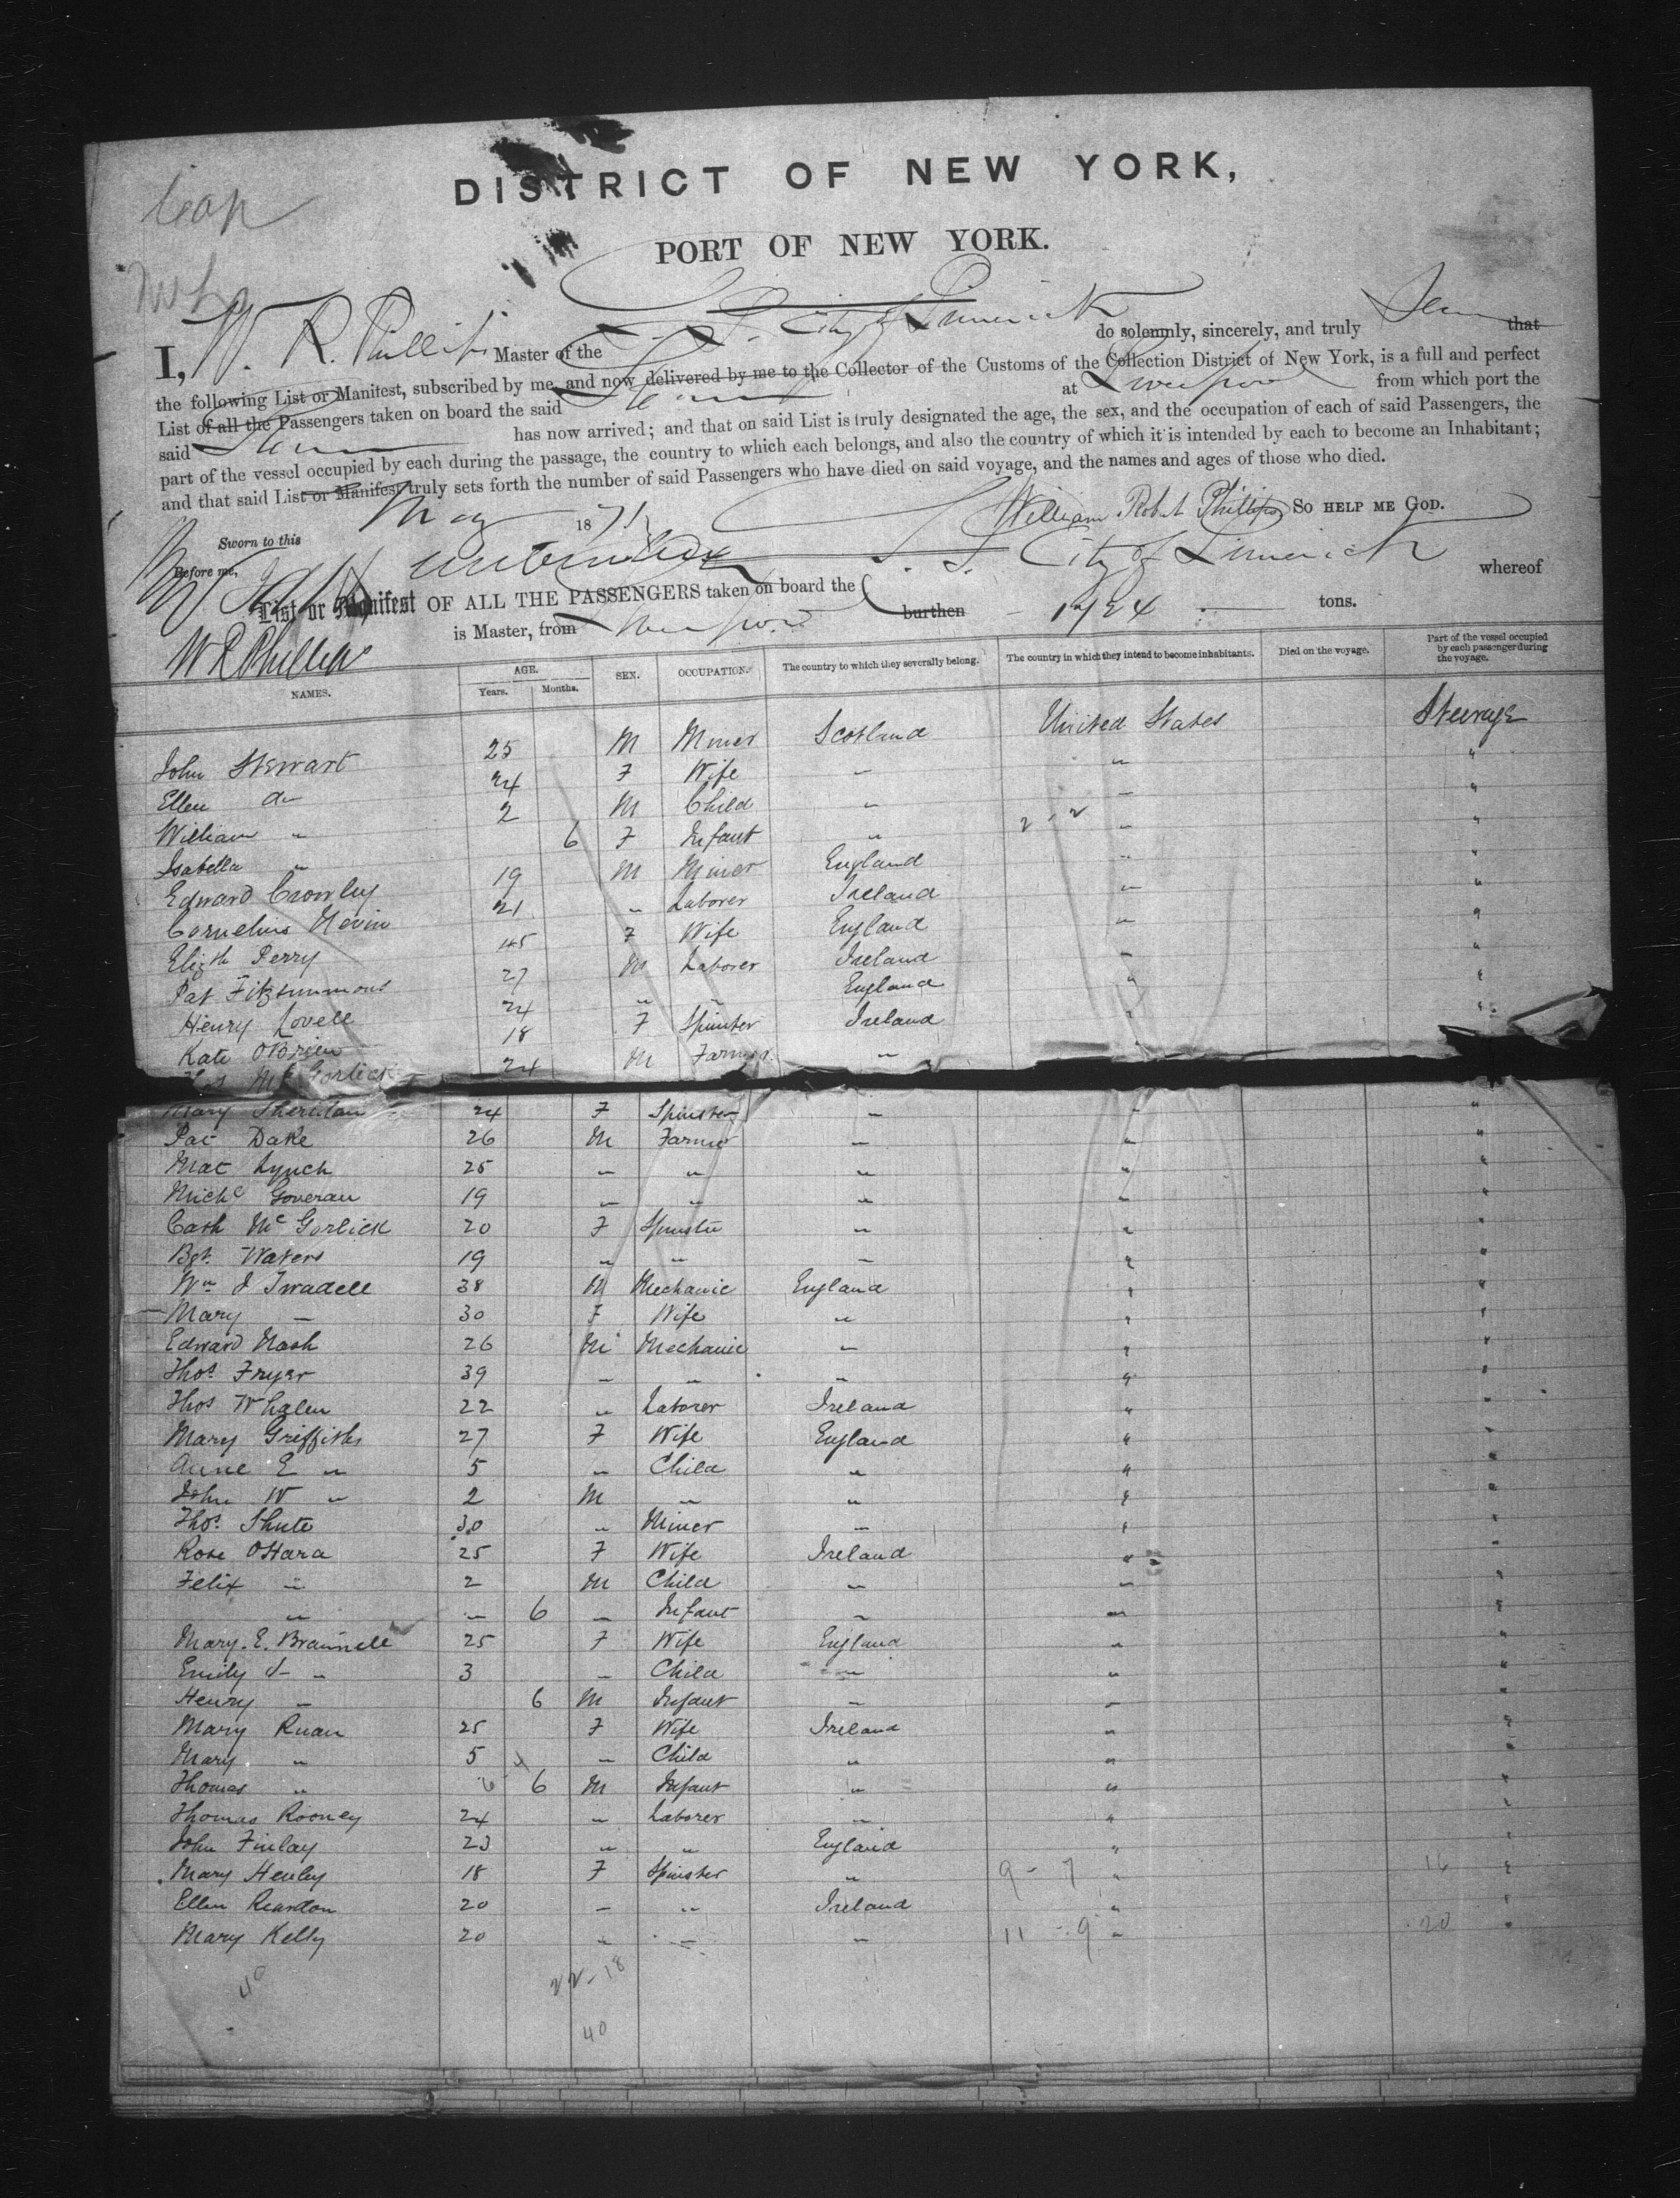 DISTRICT OF NEW YORK,
PORT OF NEW YORK.
I, W. R. Phillips Master of the S. S. City of Limerick do solemnly, sincerely, and truly that
the following List or Manifest, subscribed by me, and now delivered by me to the Collector of the Customs of the Collection District of New York, is a full and perfect
List of all the Passengers taken on board the said at Liverpool from which port the
said has now arrived; and that on said List is truly designated the age, the sex, and the occupation of each of said Passengers, the
part of the vessel occupied by each during the passage, the country to which each belongs, and also the country of which it is intended by each to become an Inhabitant;
and that said List or Manifest truly sets forth the number of said Passengers who have died on said voyage, and the names and ages of those who died.
Sworn to this May 1871 William Robert Phillips SO HELP ME GOD.
Before me,
List or Manifest OF ALL THE PASSENGERS taken on board the S. S. City of Limerick whereof
W R Phillips is Master, from Liverpool burthen 1924 tons.
NAMES. AGE. Years. Months. SEX. OCCUPATION. The country to which they severally belong. The country in which they intend to become inhabitants. Died on the voyage. Part of the vessel occupied by each passenger during the voyage.
John Stewart 25 M Miner Scotland United States Steerage
Ellen do 24 F Wife " " "
William " 2 M Child " " "
Isabella " 6 F Infant " 2-2 " "
Edward Crowley 19 M Miner England " "
Cornelius Nevin 21 " Laborer Ireland " "
Elizth Perry 45 F Wife England " "
Pat Fitzsimmons 27 M Laborer Ireland " "
Henry Lovell 24 " " England " "
Kate O'Brien 18 F Spinster Ireland " "
Mc Gorlick 24 M Farmer " "
Mary Sheridan 24 F Spinster " " "
Pat Dake 26 M Farmer " " "
Mat Lynch 25 " " " " "
Michl Goveran 19 " " " " "
Cath Mc Gorlick 20 F Spinster " " "
Bgt. Waters 19 " " " " "
Wm J Twadell 38 M Mechanic England " "
Mary " 30 F Wife " " "
Edward Nash 26 M Mechanic " " "
Thos. Fryer 39 " " " " "
Thos Whalen 22 " Laborer Ireland " "
Mary Griffiths 27 F Wife England " "
Anne E " 5 " Child " " "
John W " 2 M " " " "
Thos. Shute 30 " Miner " " "
Rose O'Hara 25 F Wife Ireland " "
Felix " 2 M Child " " "
" " 6 " Infant " " "
Mary. E. Bramnell 25 F Wife England " "
Emily J " 3 " Child " " "
Henry " 6 M Infant " " "
Mary Ruan 25 F Wife Ireland " "
Mary " 5 " Child " " "
Thomas " 6 M Infant " " "
Thomas Rooney 24 " Laborer " " "
John Finlay 23 " " England " "
Mary Henley 18 F Spinster " 9-7 " 16 "
Ellen Reardon 20 " " Ireland " "
Mary Kelly 20 " " " 11-9 " 20 "
40 22-18
40